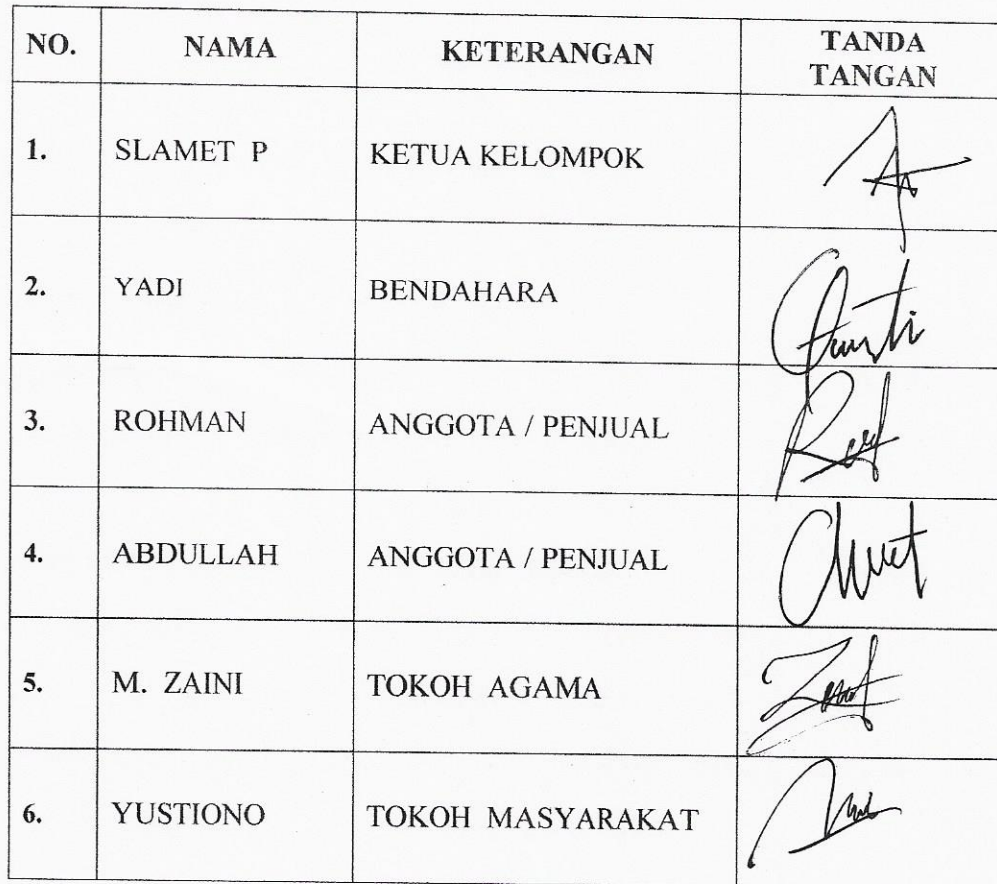 NO. NAMA KETERANGAN TANDA
TANGAN
1. SLAMET P KETUA KELOMPOK
2. YADI BENDAHARA
3. ROHMAN ANGGOTA / PENJUAL
4. ABDULLAH ANGGOTA / PENJUAL
5. M. ZAINI TOKOH AGAMA
6. YUSTIONO TOKOH MASYARAKAT